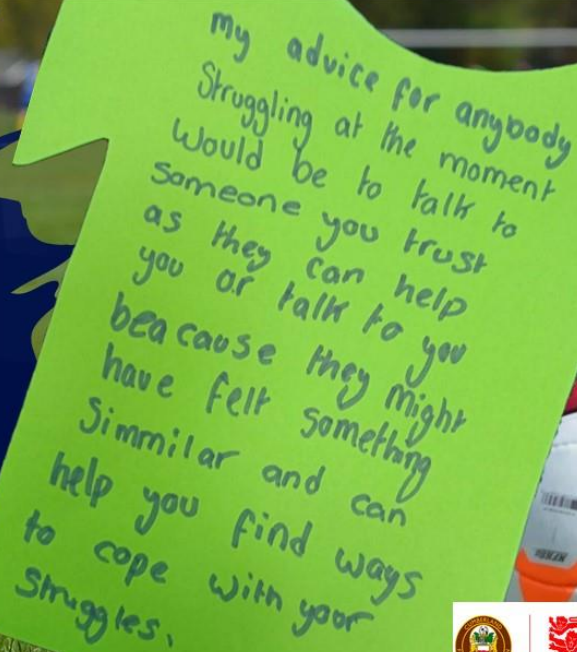 my advice for anybody
Struggling at the moment
would be to talk to
someone you trust
as they can help
you or talk to you
beacause they might
have felt something
Simmilar and can
help you find ways
to cope with your
struggles.
CUMBERLAND